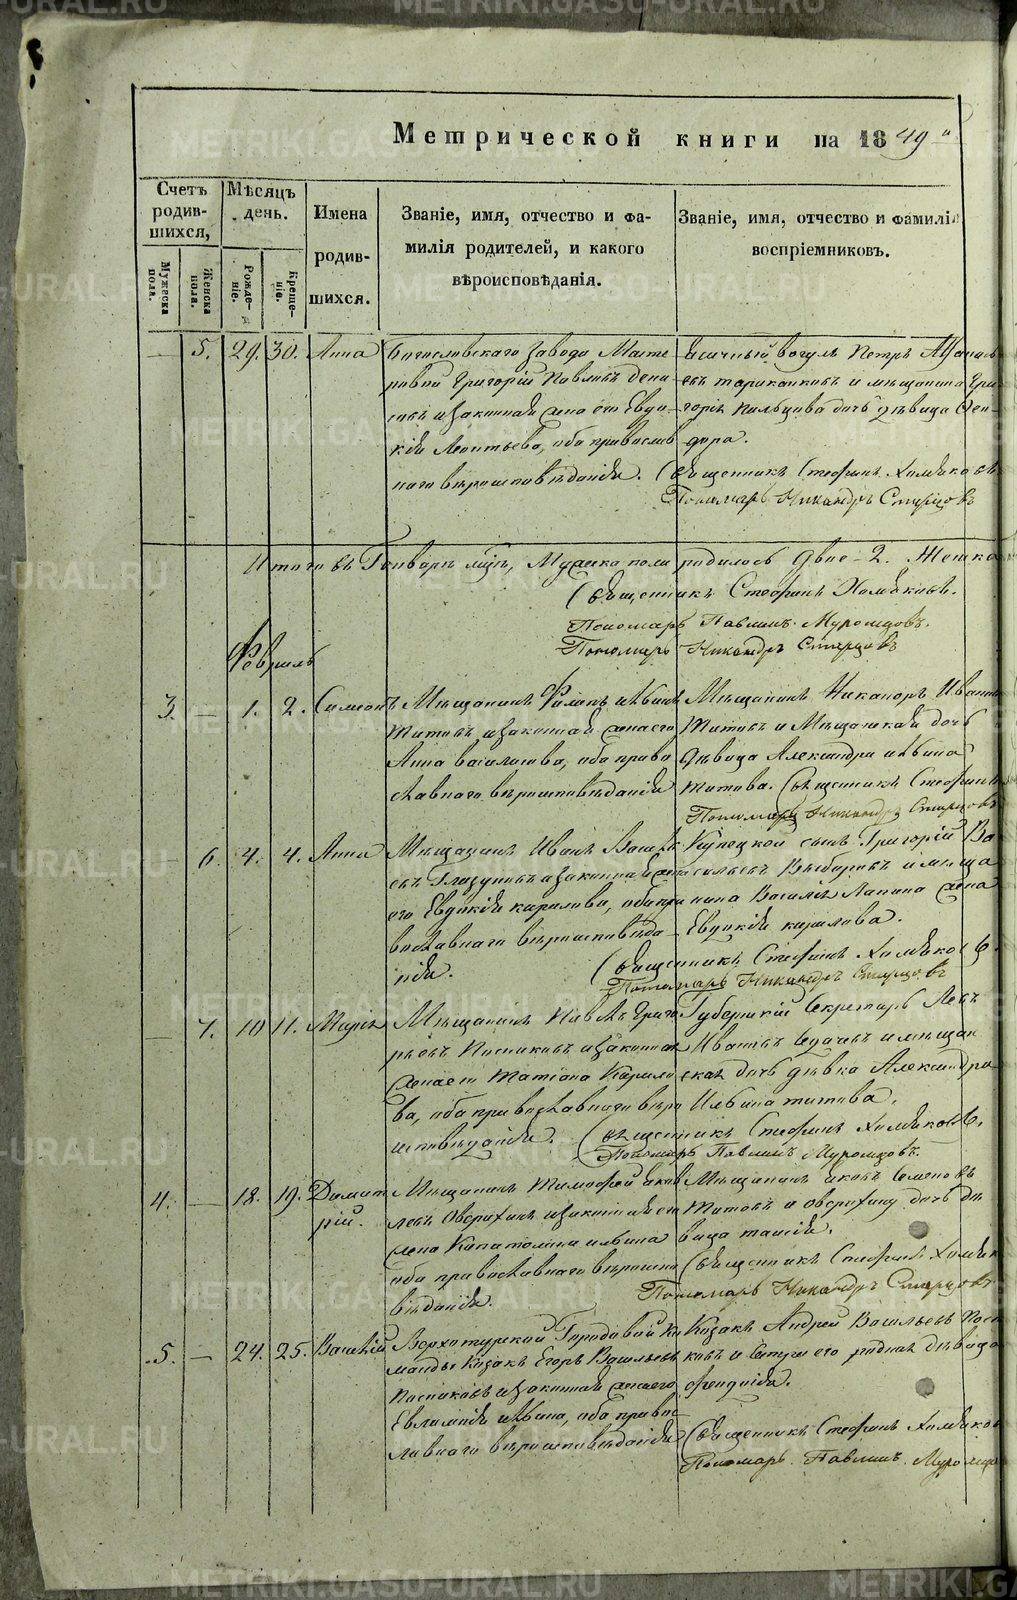 Метрической книги на 1849й
Счетъ родившихся,
Мѣсяцъ день.
Имена родившихся.
Званіе, имя, отчество и фамилія родителей, и какого вѣроисповѣданія.
Званіе, имя, отчество и фамилія воспріемниковъ.
Мужеска пола.
Женска пола.
Рожденіе.
Крещеніе.
— 5. 29. 30. Анна
Богословскаго завода Мастеровой Григорій Павловъ
и законная жена его Евдокія Леонтьева, оба православнаго вѣроисповѣданія.
вогулъ Петръ
и мѣщанина Григорія дочь дѣвица
Священникъ Стефанъ Хомяковъ
Пономарь Никандръ Старцовъ
Итого въ Генварѣ мцѣ, Мужеска пола родилось двое - 2. Женска
Священникъ Стефанъ Хомяковъ.
Пономарь Павлинъ Муромцовъ.
Пономарь Никандръ Старцовъ
Февраль
3. — 1. 2. Симеонъ
Мѣщанинъ Филипъ Ивановъ
Титовъ и законная жена его
Анна Васильева, оба православнаго вѣроисповѣданія
Мѣщанинъ Никаноръ
Титовъ и Мѣщанская дочь
дѣвица Александра Ильина
Титова. Священникъ Стефанъ
Пономарь Никандръ Старцовъ
— 6. 4. 4. Анна
Мѣщанинъ Иванъ Васильевъ Глазуновъ и законная жена
его Евдокія Кирилова, оба православнаго вѣроисповѣданія.
Купецкой сынъ Григорій Васильевъ Выборовъ и мѣщанина Василія Лапина жена
Евдокія Кирилова.
Священникъ Стефанъ Хомяковъ.
Пономарь Никандръ Старцовъ
— 7. 10 11. Марія
Мѣщанинъ Павелъ Григорьевъ Постниковъ и законная
жена его Татіана Кирилова, оба православнаго вѣроисповѣданія.
Губернскій Секретарь Левъ
Ивановъ и мѣщанская дочь дѣвка Александра
Ильина Титова.
Священникъ Стефанъ Хомяковъ.
Пономарь Павлинъ Муромцовъ.
4. — 18. 19. Димитрій.
Мѣщанинъ Тимофей Яковлевъ и законная его
жена Капитолина Ильина
оба православнаго вѣроисповѣданія.
Мѣщанинъ Яковъ Семеновъ
Титовъ и дочь дѣвица Таисія.
Священникъ Стефанъ Хомяков
Пономарь Никандръ Старцовъ
5. — 24. 25. Василій
Верхотурской Городовой Команды Казакъ Егоръ Васильевъ
Постниковъ и законная жена его
Евлампія Ильина, оба православнаго вѣроисповѣданія
Казакъ Андрей Васильевъ Постниковъ и сестра его родная дѣвица
Священникъ Стефанъ Хомяков
Пономарь Павлинъ Муромцо
METRIKI.GASO-URAL.RU